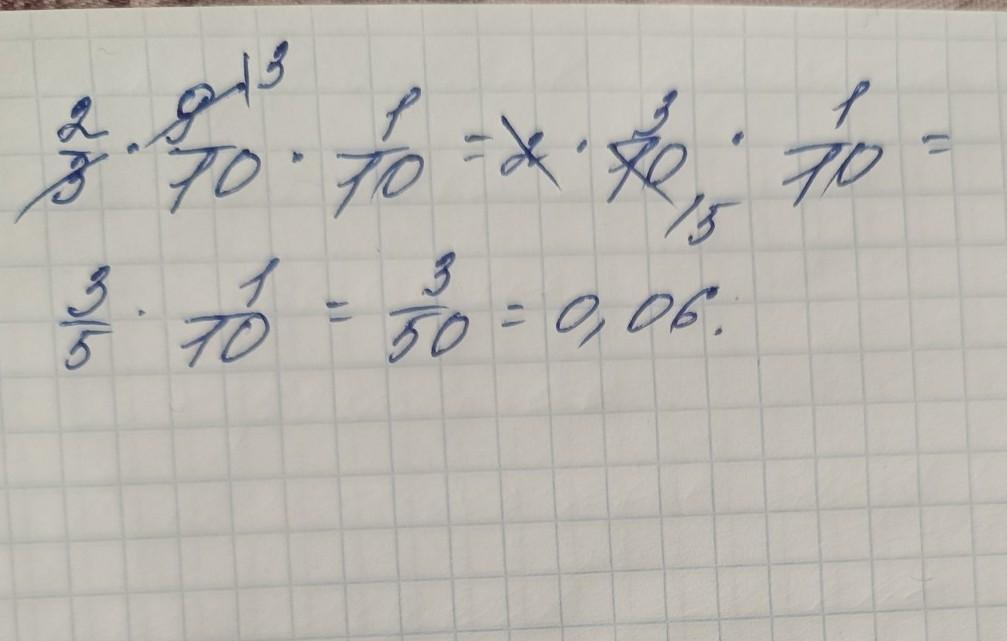 2/3 · 9/10 |3 · 1/10 = 2 · 3/10 |5 · 1/10 =
3/5 · 1/10 = 3/50 = 0,06.